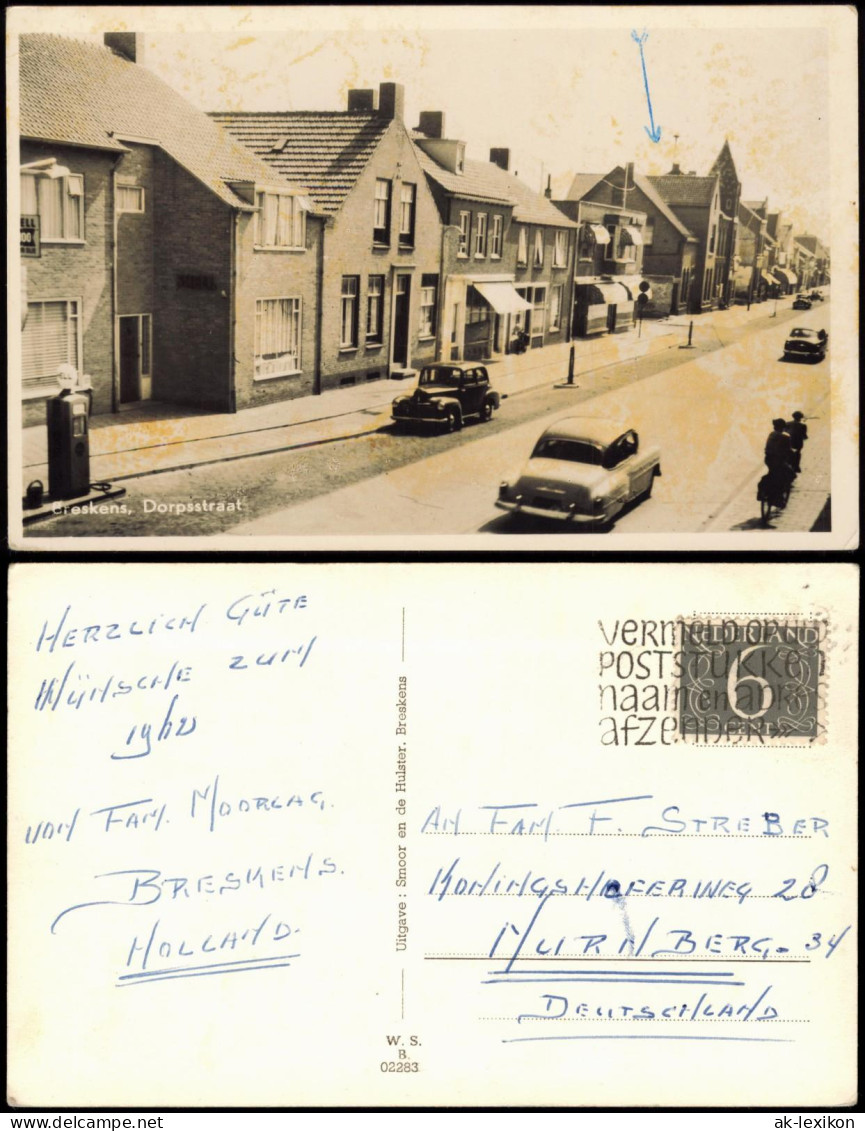 ELL
Breskens, Dorpsstraat
HERZLICH GÜTE
WÜNSCHE ZUM
VON FAM. MOORLAG.
BRESKENS.
HOLLAND.
Uitgave: Smoor en de Hulster. Breskens
W. S.
B.
02283
vermeld op uw
poststukken
naam en adres
afzender
NEDERLAND
6
CENT
AN FAM. F. STREBER
KONINGSHOFERWEG 28
NURNBERG. 34
DEUTSCHLAND
ak-lexikon